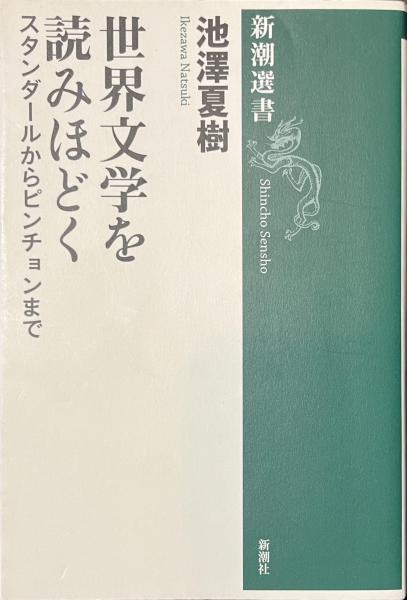 新潮選書
Shincho Sensho
新潮社
池澤夏樹
Ikezawa Natsuki
世界文学を
読みほどく
スタンダールからピンチョンまで